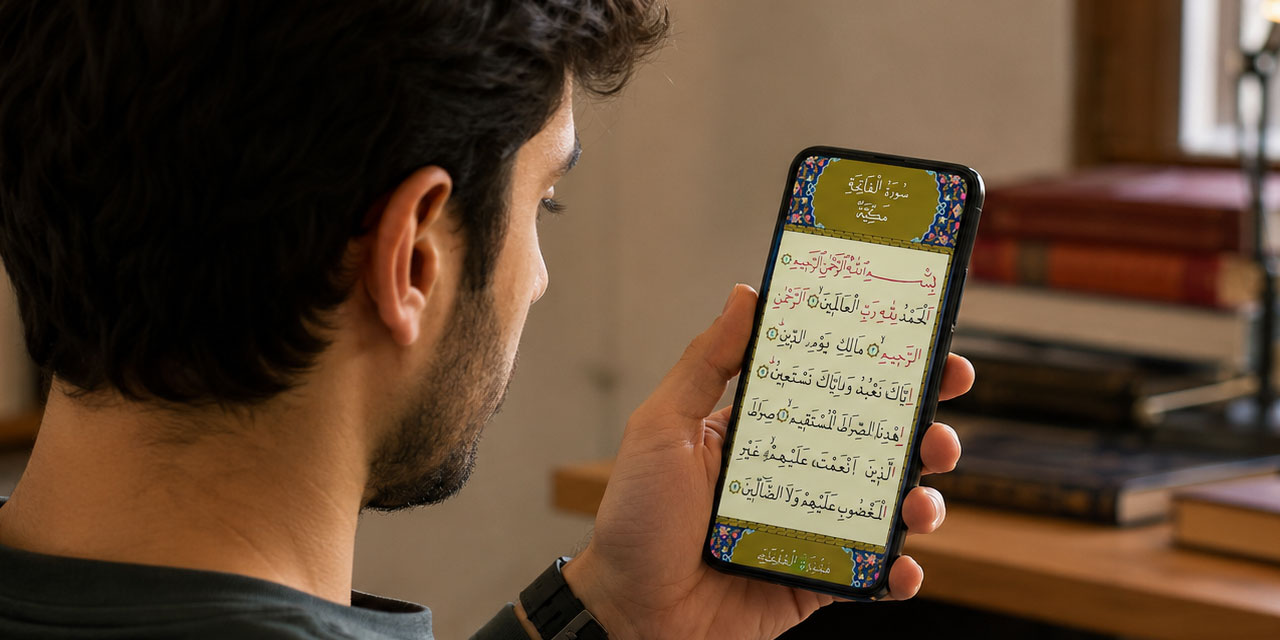 سُورَةُ الْفَاتِحَةِ
مَكِّيَّةٌ
بِسْمِ اللّٰهِ الرَّحْمٰنِ الرَّحِيمِ
اَلْحَمْدُ لِلّٰهِ رَبِّ الْعَالَمِينَ اَلرَّحْمٰنِ
الرَّحِيمِ مَالِكِ يَوْمِ الدِّينِ
اِيَّاكَ نَعْبُدُ وَاِيَّاكَ نَسْتَعِينُ
اِهْدِنَا الصِّرَاطَ الْمُسْتَقِيمَ صِرَاطَ
الَّذِينَ اَنْعَمْتَ عَلَيْهِمْ غَيْرِ
الْمَغْضُوبِ عَلَيْهِمْ وَلَا الضَّالِّينَ